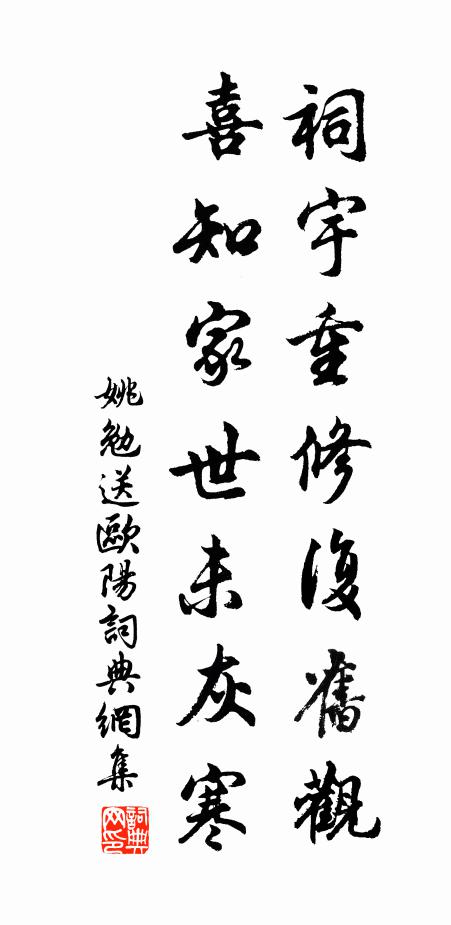 祠宇重修復舊觀
喜知家世未灰寒
姚勉送歐陽詞典網集
詞典网印